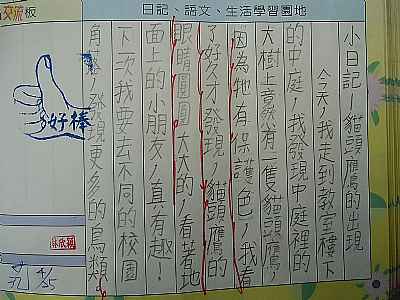 日記、語文、生活學習園地
交流板
小日記-貓頭鷹的出現
今天，我走到教室樓下
的中庭，我發現中庭裡的
大樹上竟然有一隻貓頭鷹，
因為牠有保護色，我看
了好久才發現，貓頭鷹的
眼睛圓圓大大的，看著地
面上的小朋友，真有趣！
下一次我要去不同的校園
角落，發現更多的鳥類。
好棒